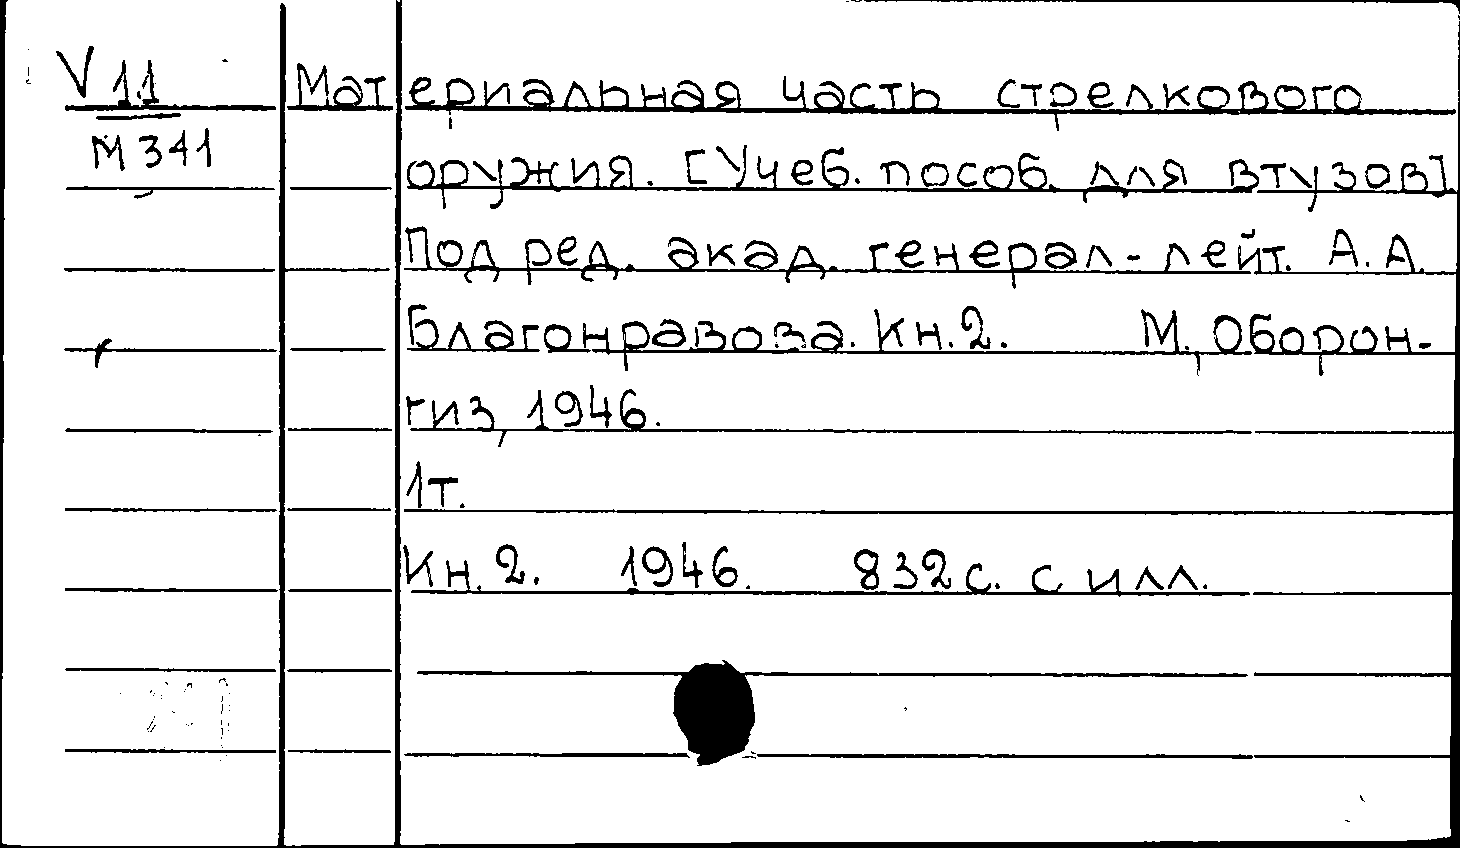 V 11
М 341
Материальная часть стрелкового
оружия. [Учеб. пособ. для втузов].
Под ред. акад. генерал-лейт. А.А.
Благонравова. Кн.2. М., Оборон-
гиз, 1946.
1т.
Кн. 2. 1946. 832 с. с илл.